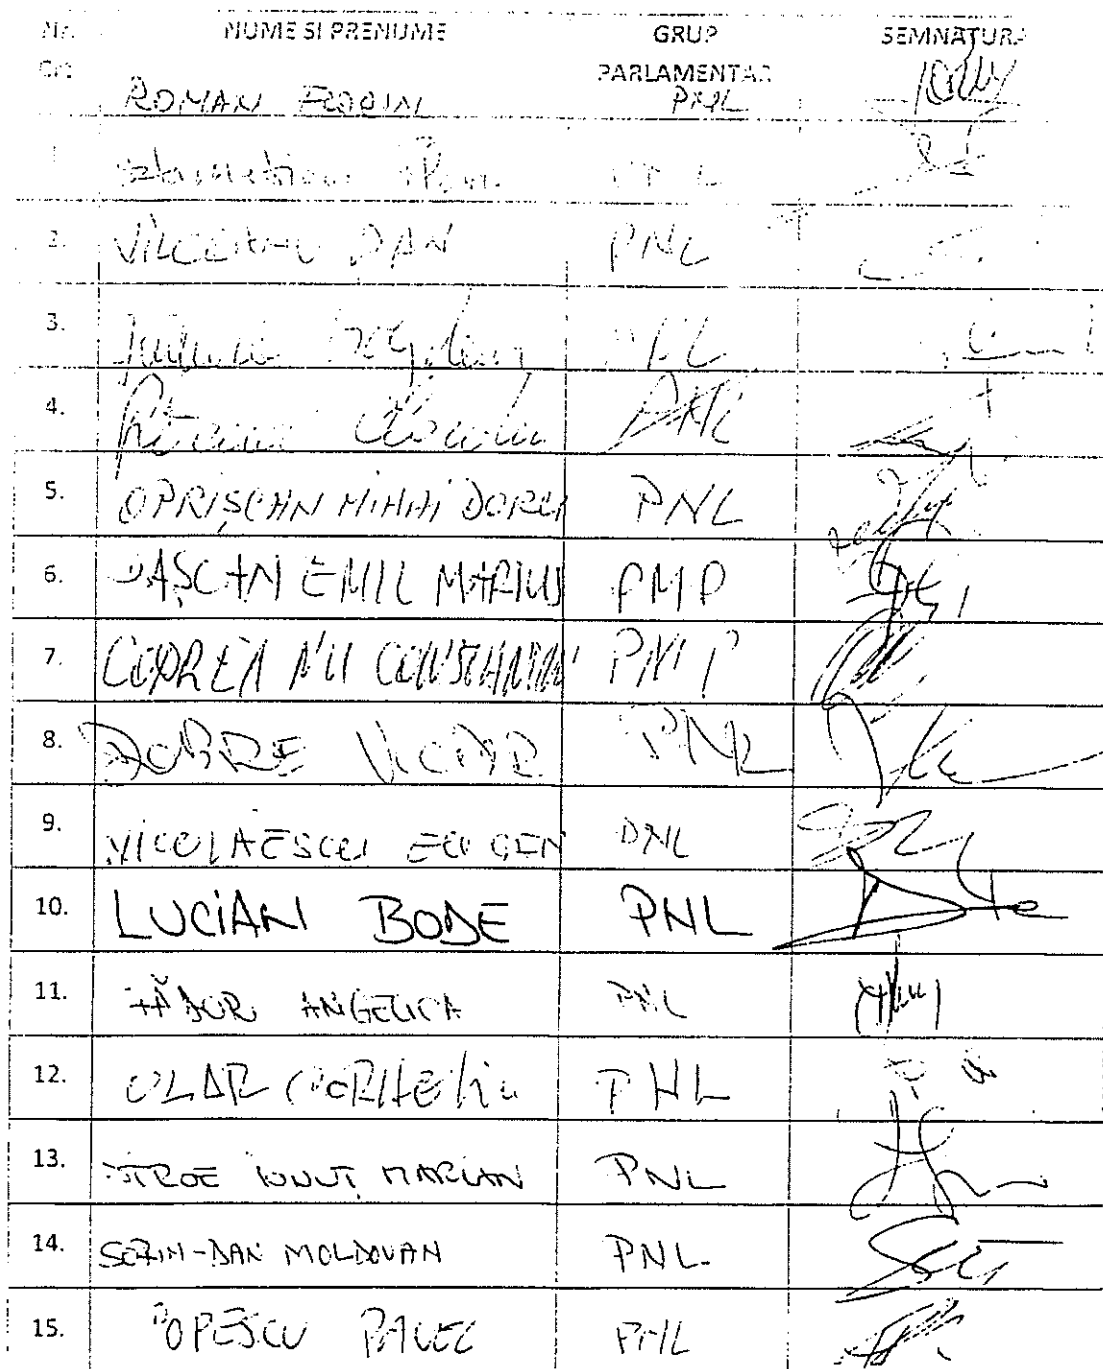 NUME SI PRENUME GRUP SEMNATURA
PARLAMENTAR
ROMAN FLORIN PNL
2. VILCEANU DAN PNL
3.
4. PNL
5. OPRIȘCAN MIHAI DOREL PNL
6. PAȘCAN EMIL MARIUS PMP
7. CODREANU CONSTANTIN PMP
8. DOBRE VICTOR PNL
9. NICOLAESCU EUGEN PNL
10. LUCIAN BODE PNL
11. FĂDOR ANGELICA PNL
12. OLAR CORNELIU PNL
13. STROE IONUȚ MARIAN PNL
14. SORIN-DAN MOLDOVAN PNL
15. POPESCU PAVEL PNL